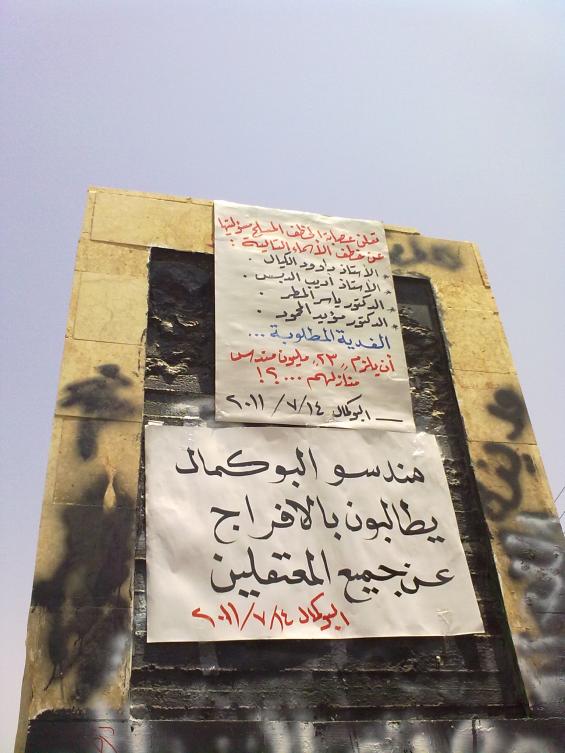 تعلن عصابة الخطف المسلح مسؤوليتها
عن خطف الأسماء التالية :
* الأستاذ داوود الكيال .
* الأستاذ أديب الدبس .
* الدكتور ياسر المطر .
* الدكتور مؤيد الحمود .
الفدية المطلوبة ...
أن يلزم ,, ٢٣ ,, مليون مندس
منازلهم ... ؟!
البوكمال ٢٠١١/٧/١٤
مهندسو البوكمال
يطالبون بالافراج
عن جميع المعتقلين
البوكمال ٢٠١١/٧/١٤